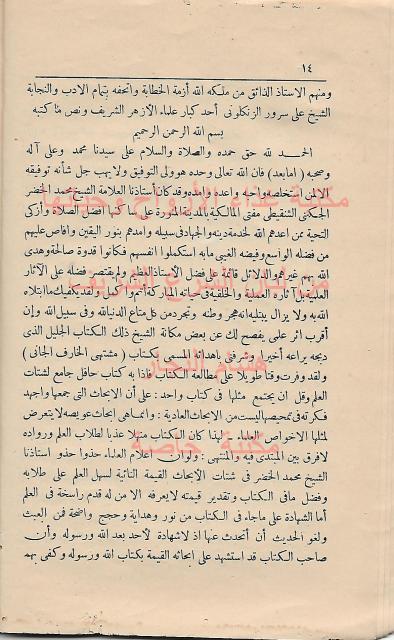 ١٤
ومنهم الاستاذ الذائق من ملكه الله أزمة الخطابة واتحفه بتمام الادب والنجابة
الشيخ على سرور الزنكلونى أحد كبار علماء الأزهر الشريف ونص ما كتبه
بسم الله الرحمن الرحيم
الحمد لله حق حمده والصلاة والسلام على سيدنا محمد وعلى آله
وصحبه (امابعد) فان الله تعالى وحده هو ولى التوفيق ولا يهب جل شأنه توفيقه
الا لمن استخلصه واحبه واعده وامده وقد كان أستاذنا العلامة الشيخ محمد الخضر
الجكنى الشنقيطى مفتى المالكية بالمدينة المنورة على ساكنها افضل الصلاة وأزكى
التحية ممن اعدهم الله لخدمة دينه والجهاد فى سبيله وامدهم بنور اليقين وافاض عليهم
من فضله الواسع وفيضه الغيبى مابه استكملوا انفسهم فكانوا قدوة صالحة وهدى
الله بهم غيرهم والدلائل قائمة على فضل الأستاذ العظيم ولم يقتصر فضله على الآثار
العلمية بل آثاره العملية والخلقية فى حياته المباركة أتم وأكمل ولقد يكفيك ما ابتلاه
الله به ولا يزال يبتليه انه هجر وطنه وتجرد من كل متاع الدنيا لله وفى سبيل الله وإن
أقرب اثر على يفصح لك عن بعض مكانة الشيخ ذلك الكتاب الجليل الذى
دبجه يراعه أخيرا وشرفنى باهدائه المسمى بكتاب (مشتهى الخارف الجانى)
ولقد وفرت وقتا طويلا على مطالعة الكتاب فاذا به كتاب حافل جامع لشتات
العلم وقل ان يجتمع مثلها فى كتاب واحد: على أن الابحاث التى جمعها واجهد
فكرته فى تمحيصها ليست من الابحاث العادية: وانما هى ابحاث عويصة لا يتعرض
لمثلها الاخواص العلماء - لهذا كان الكتاب منهلا عذبا لطلاب العلم ورواده
لافرق بين المبتدى فيه والمنتهى: ولو ان أعلام العلماء حذوا حذو استاذنا
الشيخ محمد الخضر فى شتات الأبحاث القيمة النائية لسهل العلم على طلابه
وفضل مافى الكتاب وتقدير قيمته لايعرفه الا من له قدم راسخة فى العلم
أما الشهادة على ماجاء فى الكتاب من نور وهداية وحجج واضحة فمن العبث
ولغو الحديث أن أتحدث عنها اذ لاشهادة لأحد بعد الله ورسوله وأن
صاحب الكتاب قد استشهد على ابحاثه القيمة بكتاب الله ورسوله وكفى بهم
مكتبة غذاء الأرواح وحياتها
هشام النجار
مكتبة خاصة